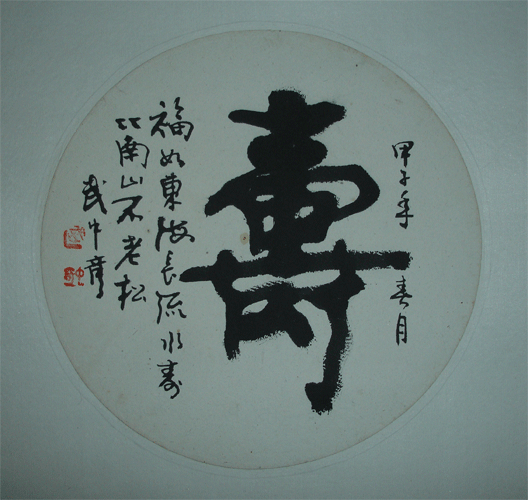 甲子年 春月
壽
福如東海長流水壽
比南山不老松
武中奇